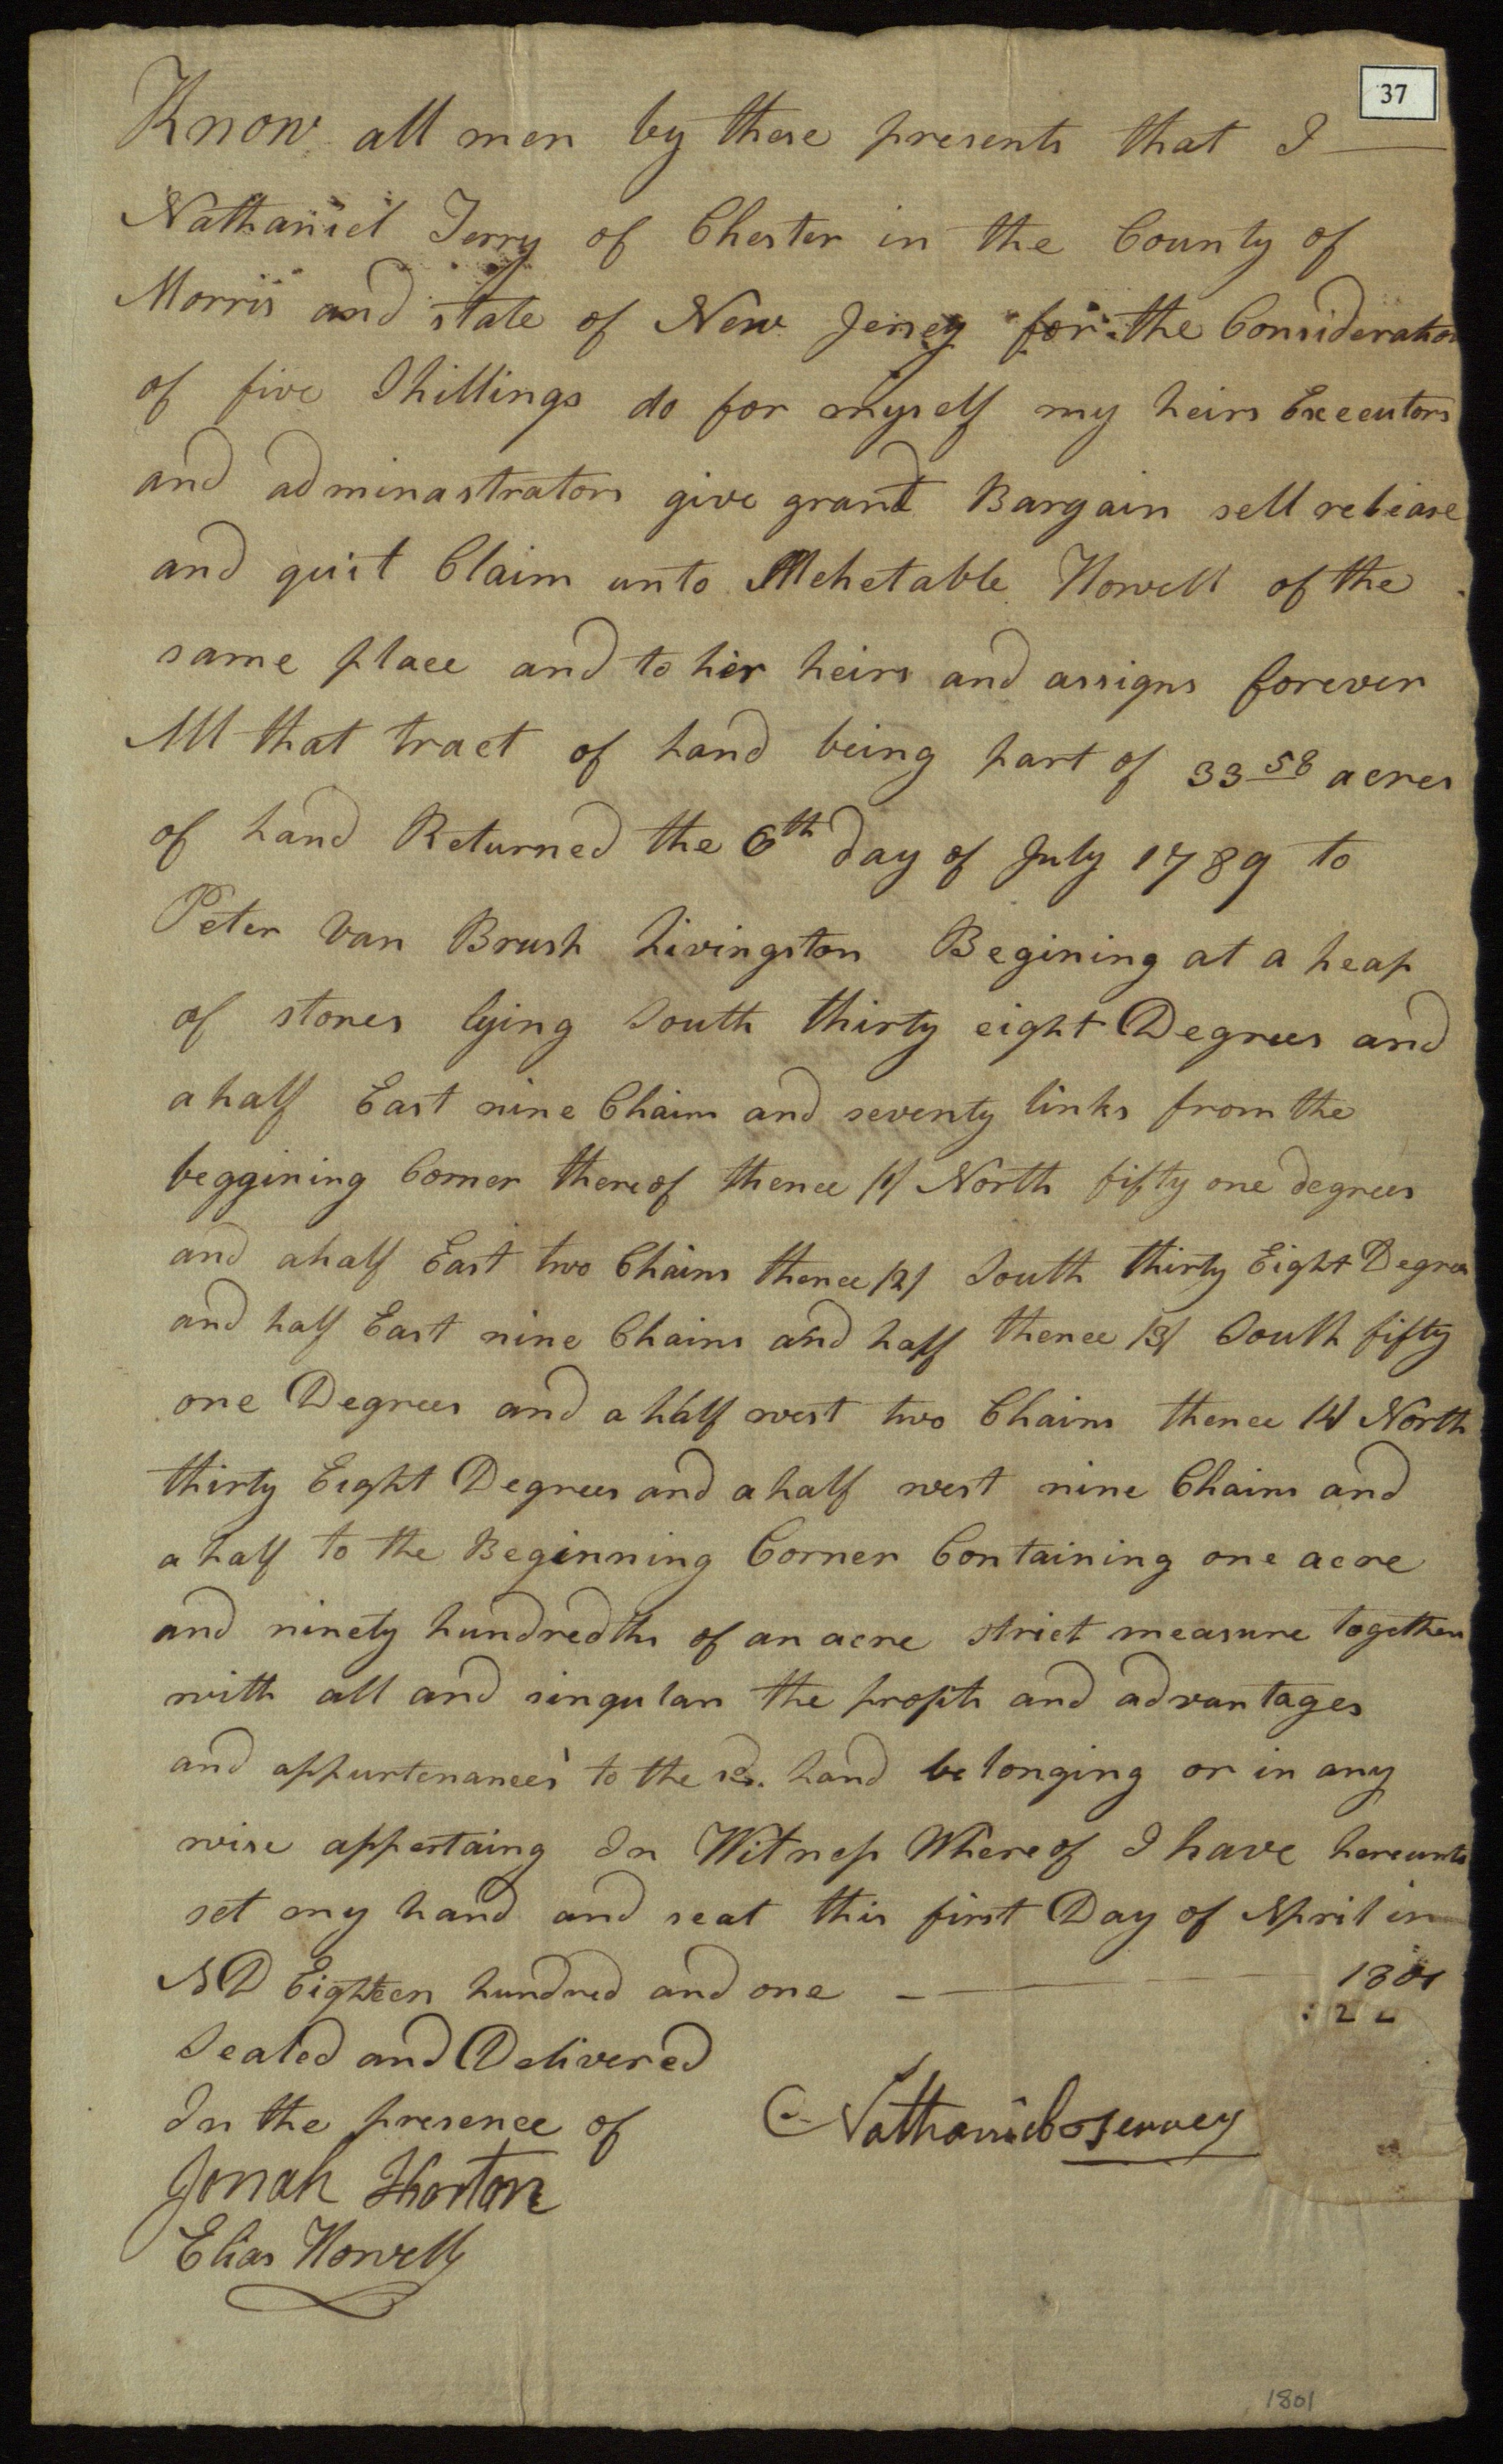 37
Know all men by these presents that I
Nathaniel Terry of Chester in the County of
Morris and state of New Jersey for the Consideration
of five Shillings do for myself my heirs Executors
and adminastrators give grant Bargain sell release
and quit Claim unto Mehetable Howell of the
same place and to her heirs and assigns forever
All that tract of Land being part of 33 58 acres
of Land Returned the 6th day of July 1789 to
Peter Van Brush Livingston Begining at a heap
of stones lying South thirty eight Degrees and
a half East nine Chains and seventy links from the
beggining Corner thereof thence /1/ North fifty one degrees
and a half East two Chains thence /2/ South thirty Eight Degrees
and half East nine Chains and half thence /3/ South fifty
one Degrees and a half west two Chains thence /4/ North
thirty Eight Degrees and a half west nine Chains and
a half to the Beginning Corner Containing one acre
and ninety hundredths of an acre strict measure together
with all and singular the profits and advantages
and appurtenances to the sd. Land belonging or in any
wise appertaing In Witness Whereof I have hereunto
set my hand and seal this first Day of April in
AD Eighteen hundred and one 1801
Sealed and Delivered
In the presence of
Nathaniel
Jonah Horton
Elias Howell
1801